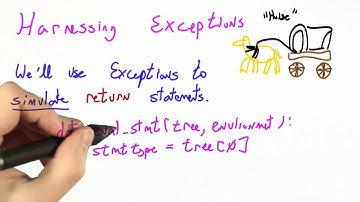 Harnessing Exceptions
"Hoise"
We'll use Exceptions to
simulate return statements.
stmt(tree, environment):
stmttype = tree[0]